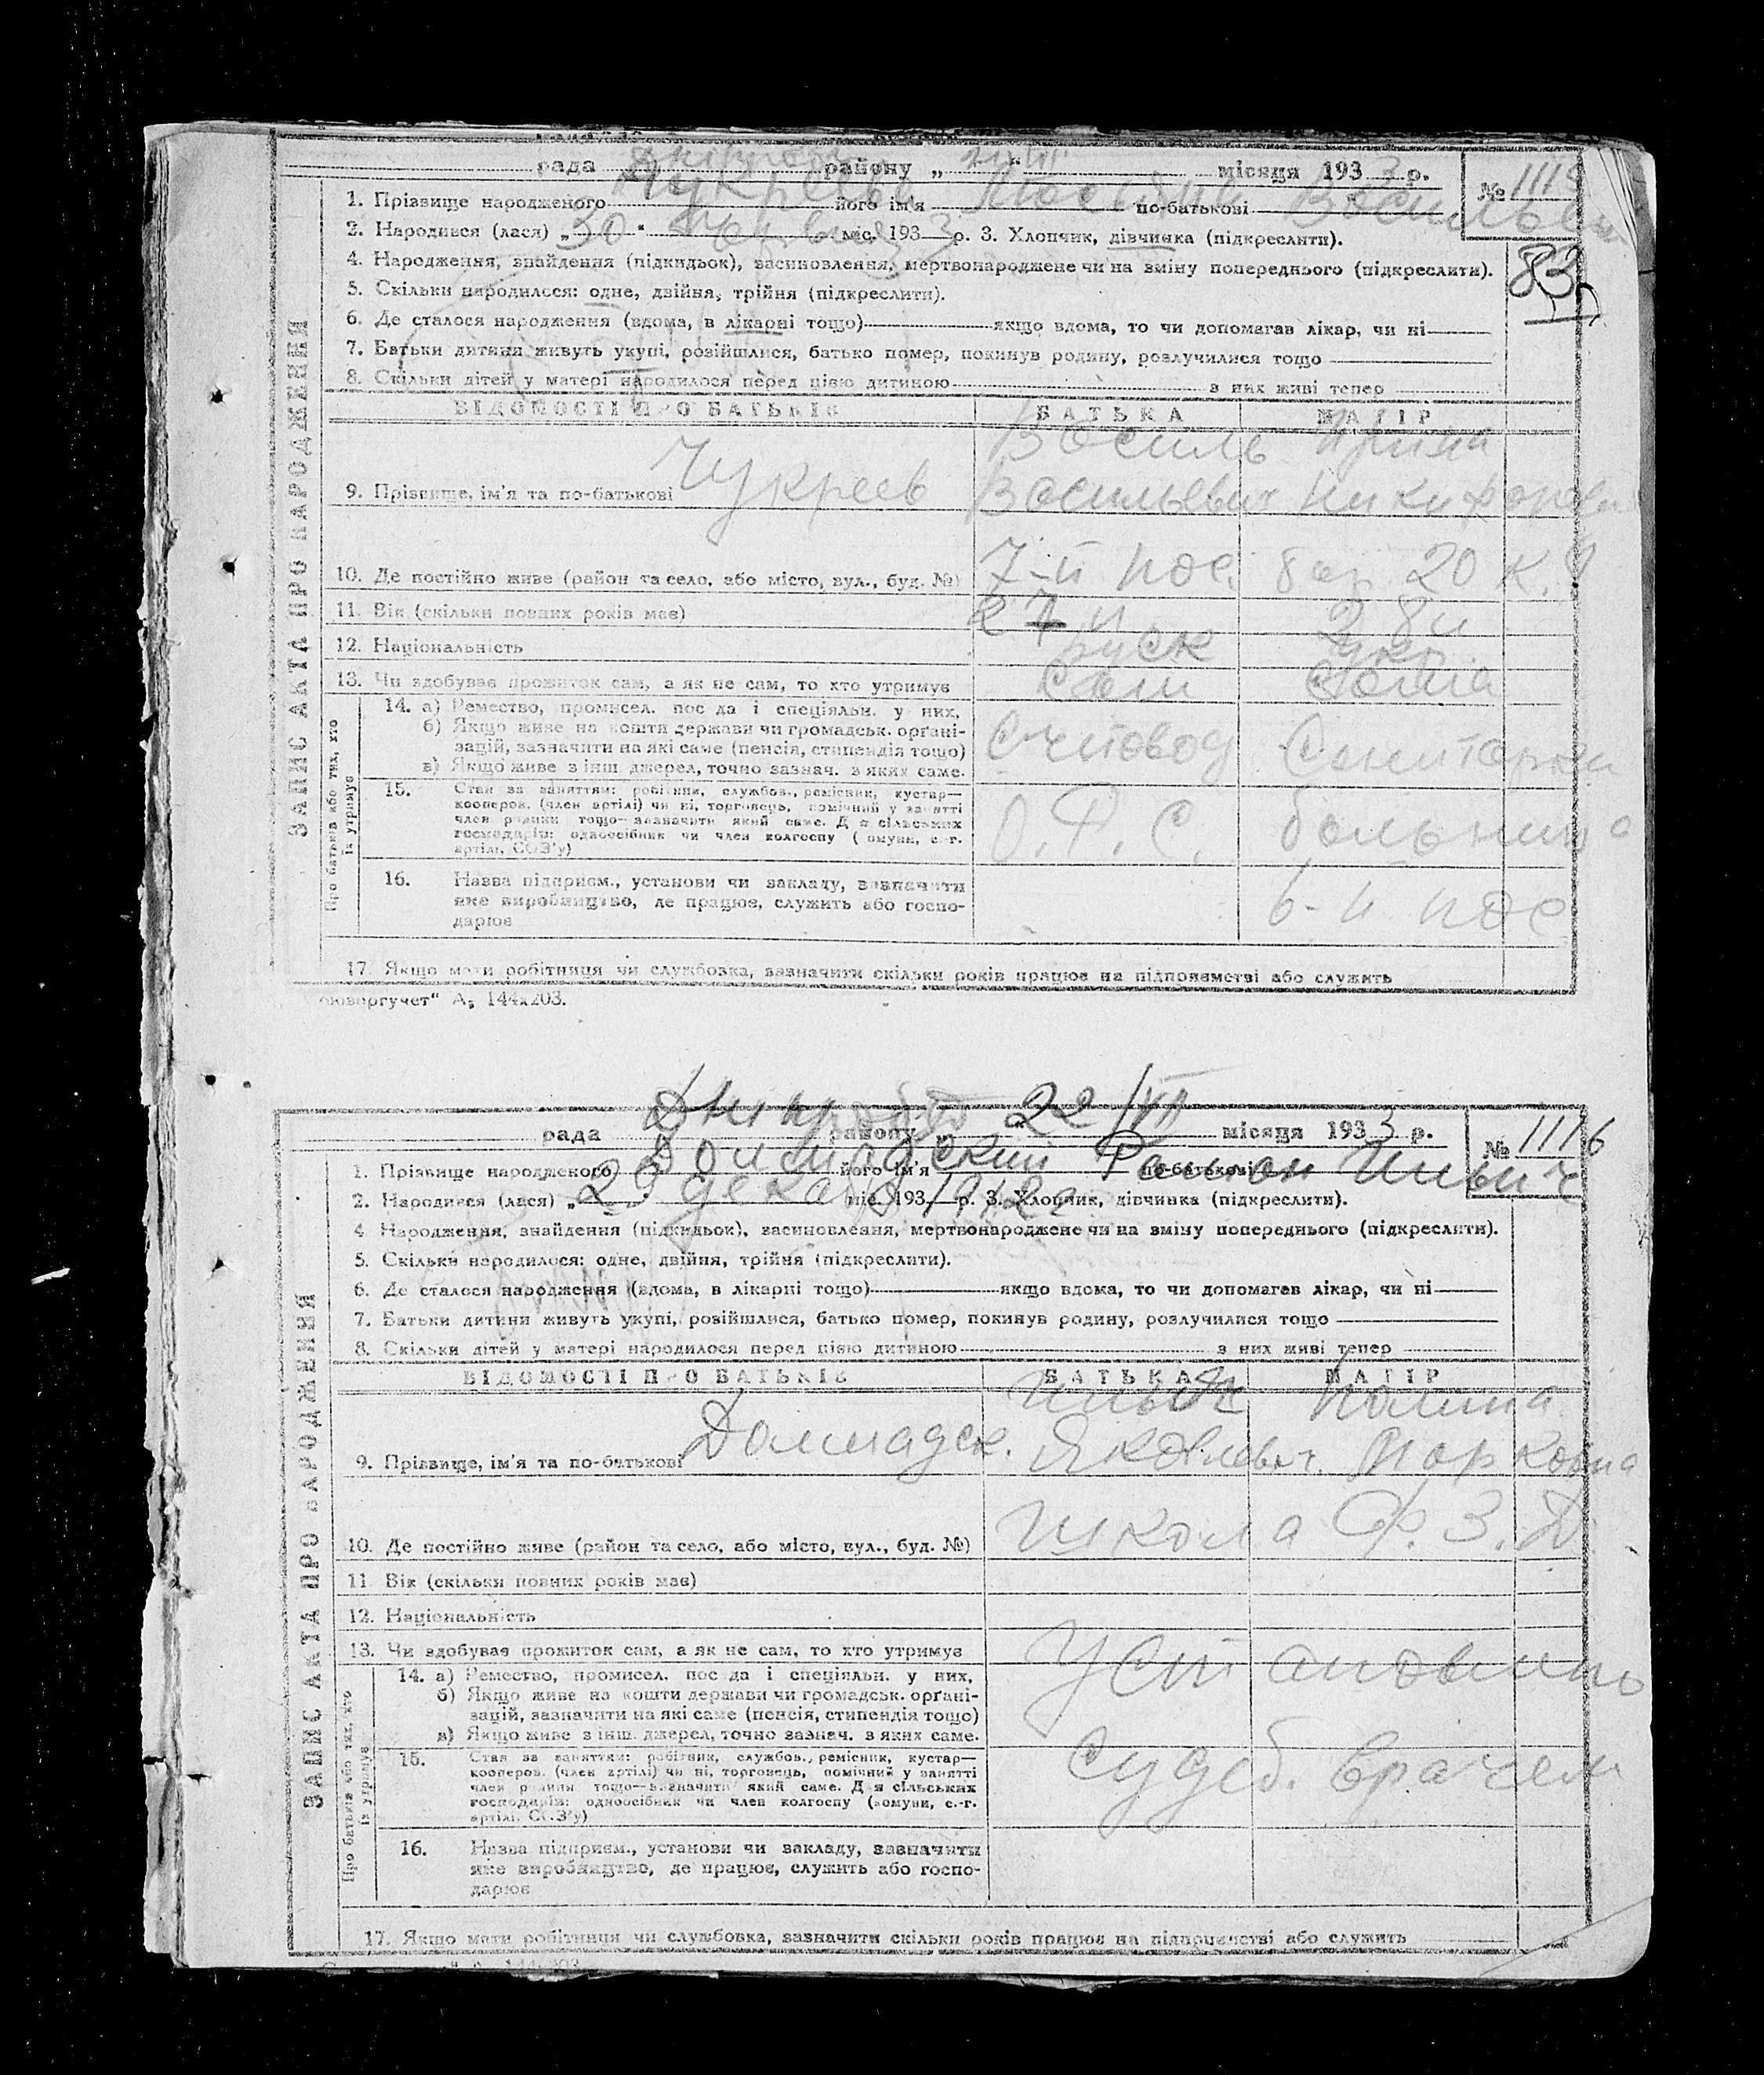 рада району „ " місяця 1933 р.
№ 1115
1. Прізвище народженого Чукреев його ім'я по-батькові Васильевна
2. Народився (лася) „30" червня міс. 1933 р. 3. Хлопчик, дівчинка (підкреслити).
83
4. Народження, знайдення (підкидьок), засиновлення, мертвонароджене чи на зміну попереднього (підкреслити).
5. Скільки народилося: одне, двійня, трійня (підкреслити).
6. Де сталося народження (вдома, в лікарні тощо) якщо вдома, то чи допомагав лікар, чи ні
7. Батьки дитини живуть укупі, розійшлися, батько помер, покинув родину, розлучилися тощо
8. Скільки дітей у матері народилося перед цією дитиною з них живі тепер
ЗАПИС АКТА ПРО НАРОДЖЕННЯ
ВІДОМОСТІ ПРО БАТЬКІВ БАТЬКА МАТІР
Василь Ирина
9. Прізвище, ім'я та по-батькові Чукреев Васильевич Никифоровн
10. Де постійно живе (район та село, або місто, вул., буд. №) 7-й пос. бар 20 к. 9
11. Вік (скільки повних років має) 27 л 28 л
12. Національність руск укр.
13. Чи здобуває прожиток сам, а як не сам, то хто утримує Сам Сама
Про батьків або тих, хто їх утримує
14. а) Ремество, промисел. пос да і спеціяльн. у них,
б) Якщо живе на кошти держави чи громадськ. орґані-
зацій, зазначити на які саме (пенсія, стипендія тощо)
в) Якщо живе з інш. джерел, точно зазнач. з яких саме.
Счетовод Санитарка
15. Стан за заняттям: робітник, службов., ремісник, кустар—
кооперов. (член артілі) чи ні, торговець, помічний у занятті
член родини тощо—зазначити який саме. Д я сільських
господарів: одноосібник чи член колгоспу ( омуни, с.-г.
артілі, СОЗ'у)
О. Р. С. больница
16. Назва підприєм., установи чи закладу, зазначити
яке виробництво, де працює, служить або госпо-
дарює
6-й пос
17. Якщо мати робітниця чи службовка, зазначити скільки років працює на підприємстві або служить
оюзоргучет" А₅ 144x203.
рада району „22/VII" місяця 1933 р.
№ 1116
1. Прізвище народженого його ім'я по-батькові Ильич
2. Народився (лася) „ декабр міс. 193 р. 3. Хлопчик, дівчинка (підкреслити).
4 Народження, знайдення (підкидьок), засиновлення, мертвонароджене чи на зміну попереднього (підкреслити).
5. Скільки народилося: одне, двійня, трійня (підкреслити).
6. Де сталося народження (вдома, в лікарні тощо) якщо вдома, то чи допомагав лікар, чи ні
7. Батьки дитини живуть укупі, розійшлися, батько помер, покинув родину, розлучилися тощо
8. Скільки дітей у матері народилося перед цією дитиною з них живі тепер
ЗАПИС АКТА ПРО НАРОДЖЕННЯ
ВІДОМОСТІ ПРО БАТЬКІВ БАТЬКА МАТІР
Полина
9. Прізвище, ім'я та по-батькові Яковлевич Марковна
10. Де постійно живе (район та село, або місто, вул., буд. №) Школа Ф. З. Д.
11 Вік (скільки повних років має)
12. Національність
13. Чи здобуває прожиток сам, а як не сам, то хто утримує
Установлено
Про батьків або тих, хто їх утримує
14. а) Ремество, промисел. пос да і спеціяльн. у них,
б) Якщо живе на кошти держави чи громадськ. орґані-
зацій, зазначити на які саме (пенсія, стипендія тощо)
в) Якщо живе з інш. джерел, точно зазнач. з яких саме.
15. Стан за заняттям: робітник, службов., ремісник, кустар—
кооперов. (член артілі) чи ні, торговець, помічний у занятті
член родини тощо—зазначити який саме. Д я сільських
господарів: одноосібник чи член колгоспу (комуни, с.-г.
артілі, СОЗ'у)
судеб. врачем
16. Назва підприєм., установи чи закладу, зазначити
яке виробництво, де працює, служить або госпо-
дарює
17. Якщо мати робітниця чи службовка, зазначити скільки років працює на підприємстві або служить